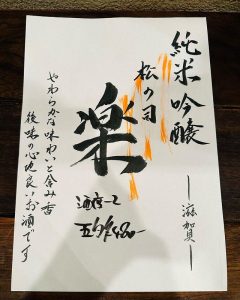 純米吟醸
―滋賀―
松の司
楽
五勺
やわらかな味わいと含み香
後味の心地良いお酒です